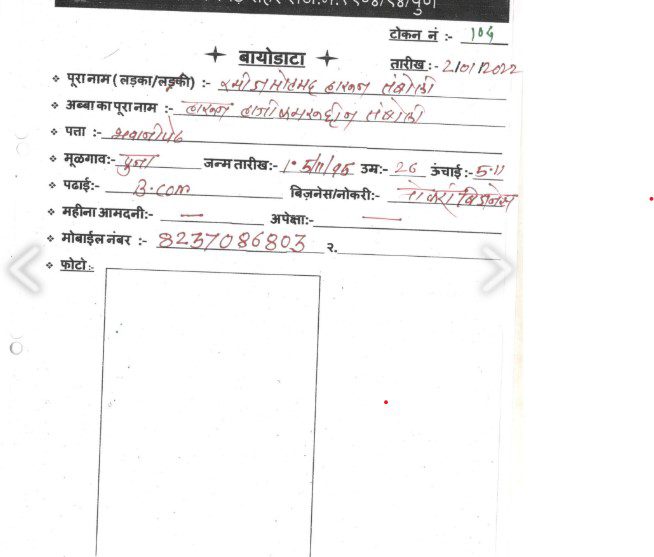 टोकन नं :- 104
बायोडाटा
तारीख :- 2/01/2022
पूरा नाम ( लड़का/लड़की) :- रमीज मोहमद हारुन तंबोली
अब्बा का पूरा नाम :- हारुन हाजी कमरुद्दीन तंबोली
पता :- भवानी पेठ
मूळगाव:- पुना जन्म तारीख:- 5/11/95 उम्र:- 26 ऊंचाई :- 5.11
पढाई:- B.com बिज़नेस/नोकरी:- नोकरी/बिजनेस
महीना आमदनी:- — अपेक्षा:- —
मोबाईल नंबर :- 8237086803 २.
फोटो :-